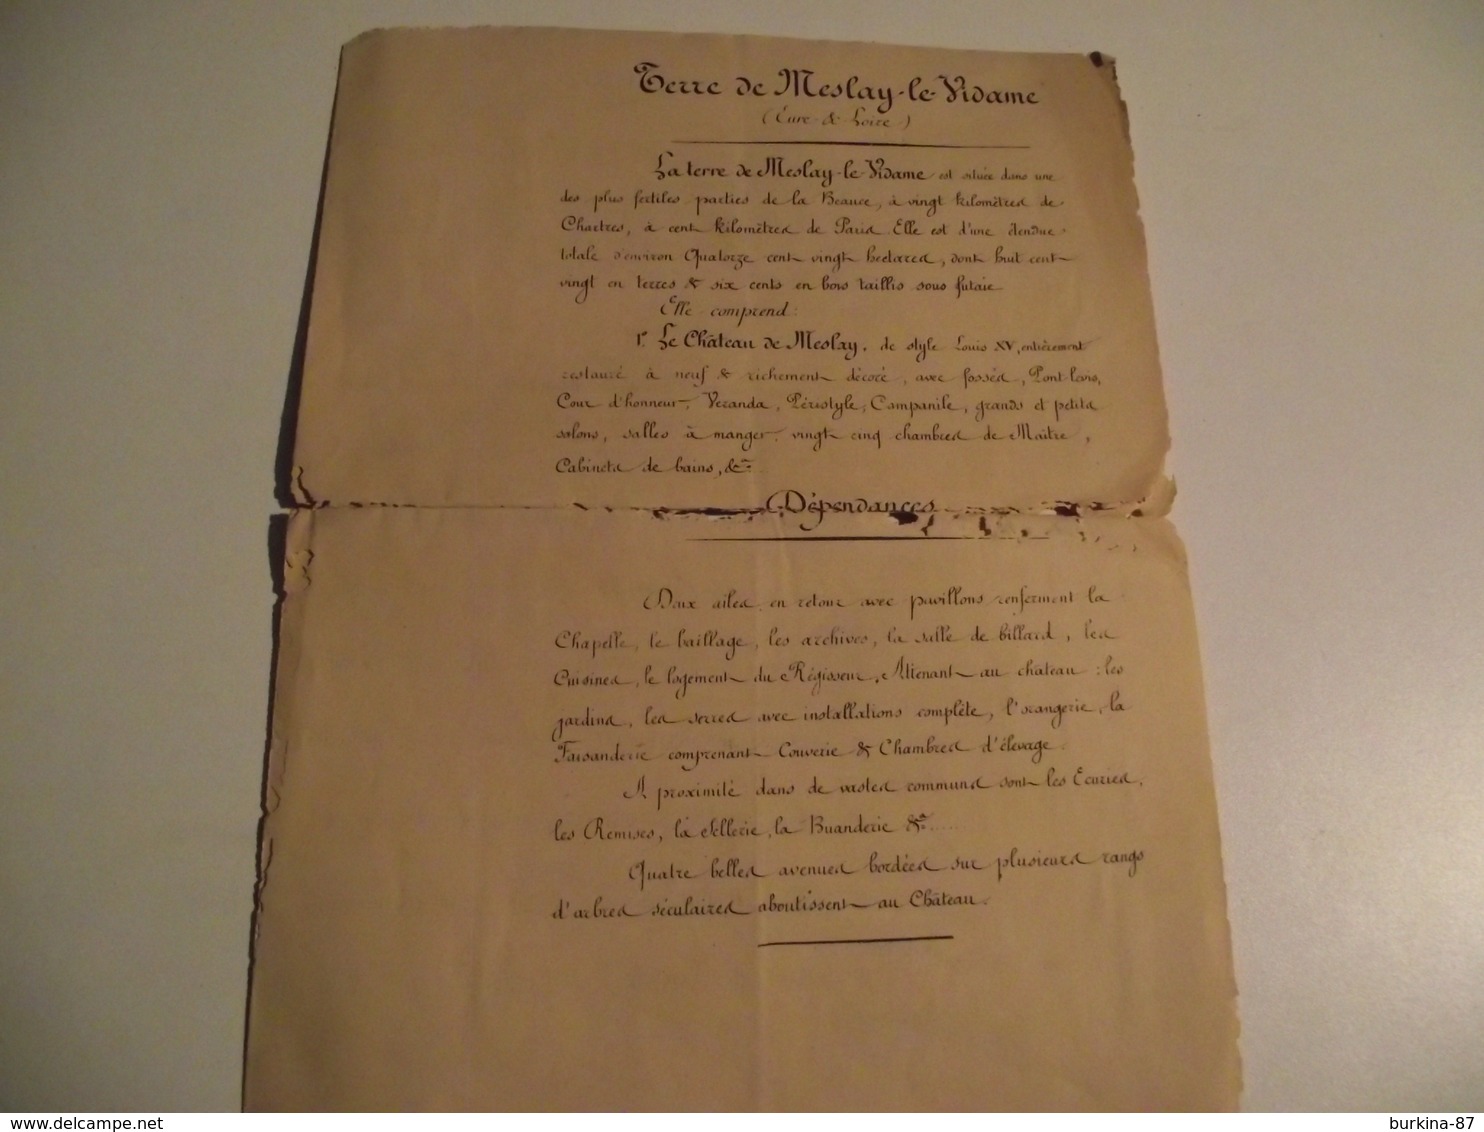 Terre de Meslay-le-Vidame
(Eure & Loire)
La terre de Meslay-le-Vidame est située dans une
des plus fertiles parties de la Beauce, à vingt kilomètres de
Chartres, à cent kilomètres de Paris. Elle est d'une étendue
totale d'environ Quatorze cent vingt hectares, dont huit cent
vingt en terres & six cents en bois taillis sous futaie
Elle comprend :
1º Le Château de Meslay, de style Louis XV, entièrement
restauré à neuf & richement décoré, avec fossés, Pont-levis,
Cour d'honneur, Veranda, Péristyle, Campanile, grands et petits
salons, salles à manger, vingt cinq chambres de Maître,
Cabinets de bains, &ª
Dépendances
Deux ailes en retour avec pavillons renferment la
Chapelle, le baillage, les archives, la salle de billard, les
Cuisines, le logement du Régisseur. Attenant au château : les
jardins, les serres avec installations complète, l'orangerie, la
Faisanderie comprenant Couverie & Chambres d'élevage.
A proximité dans de vastes communs sont les Ecuries,
les Remises, la Sellerie, la Buanderie &ª.....
Quatre belles avenues bordées sur plusieurs rangs
d'arbres séculaires aboutissent au Château.
burkina-87